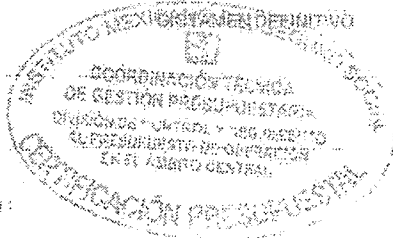 INSTITUTO MEXICANO DEL SEGURO SOCIAL
DICTAMEN DEFINITIVO
COORDINACIÓN TÉCNICA
DE GESTIÓN PRESUPUESTARIA
DIVISIÓN DE CONTROL Y SEGUIMIENTO
AL PRESUPUESTO DE OPERACIÓN
EN EL ÁMBITO CENTRAL
CERTIFICACIÓN PRESUPUESTAL